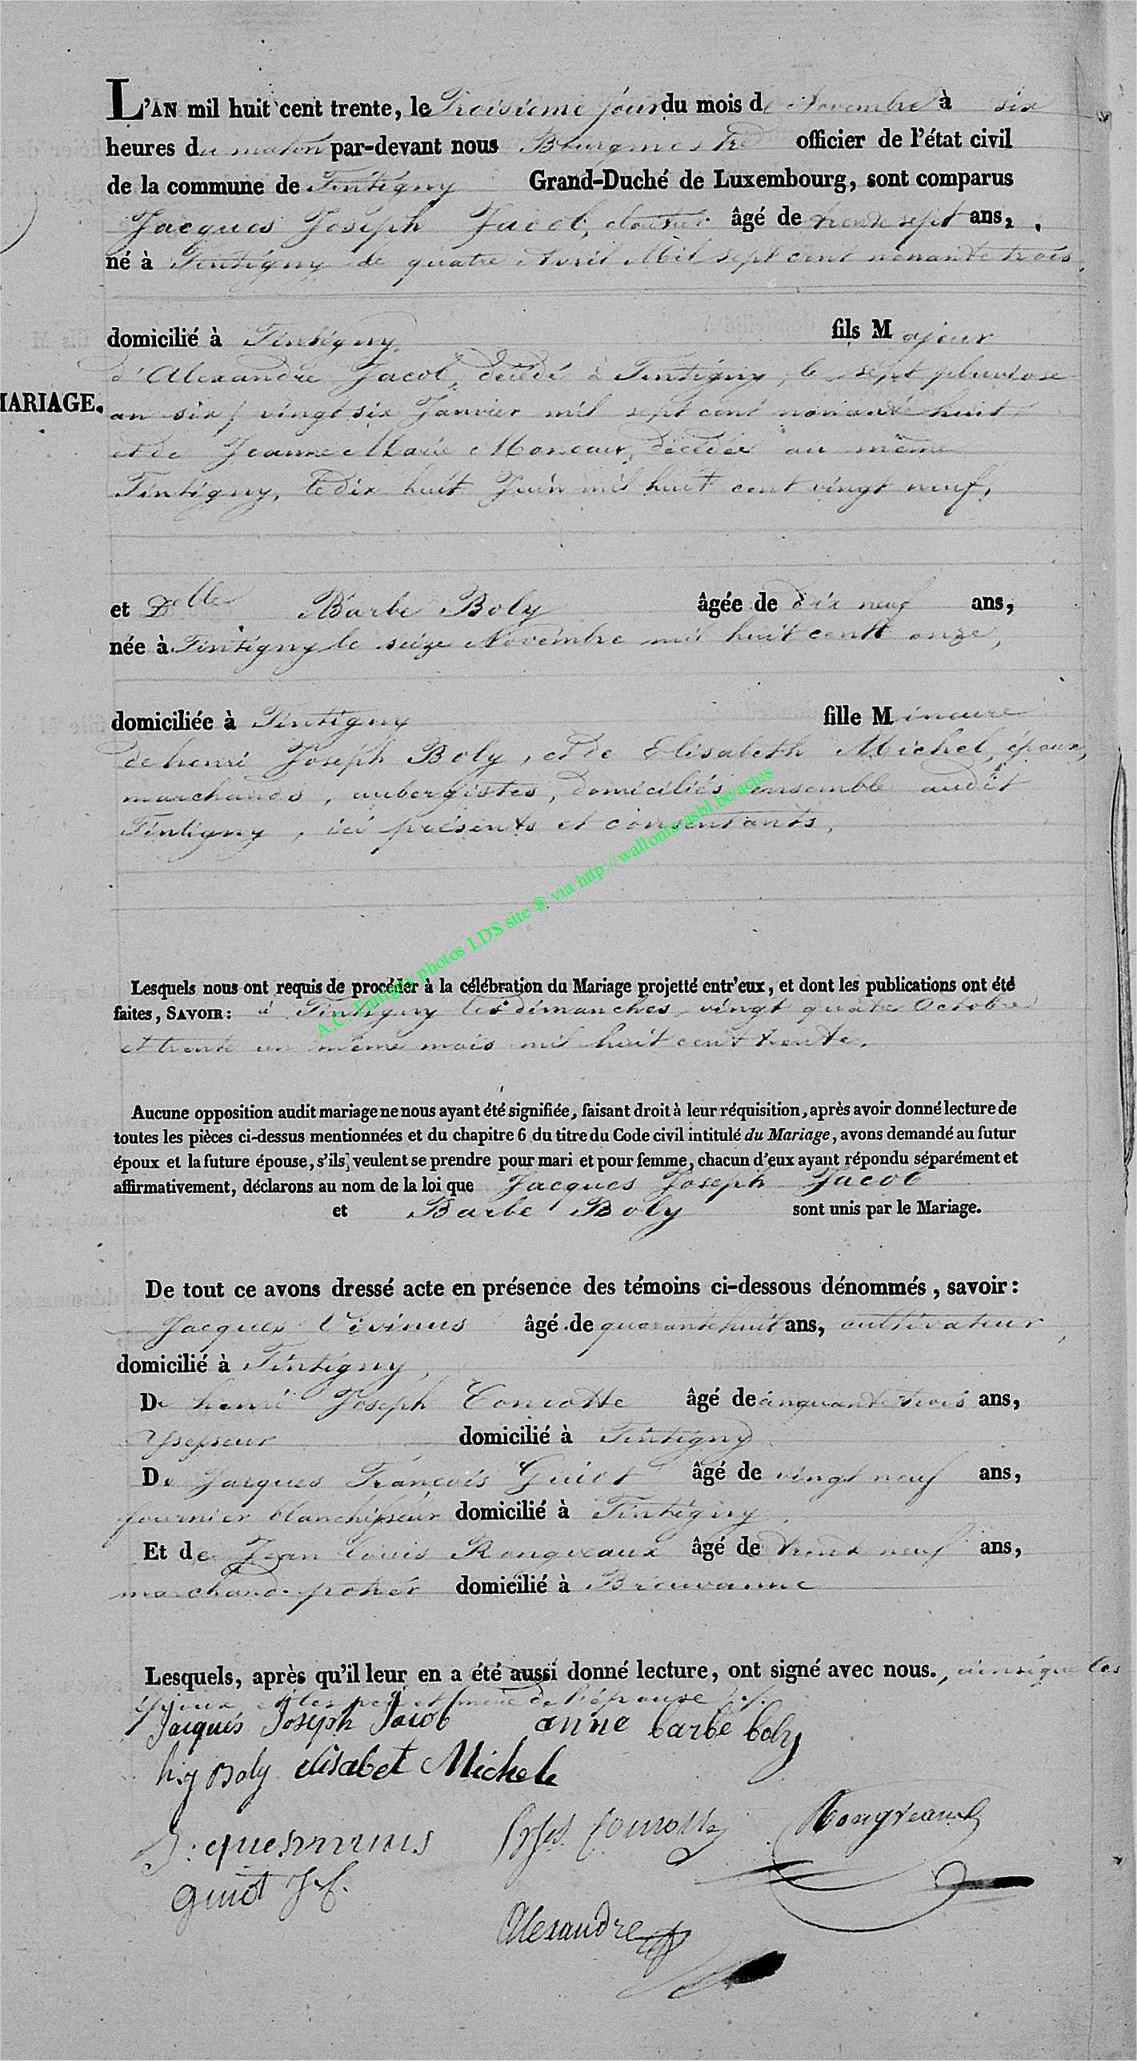 L'AN mil huit cent trente, le Troisieme jour du mois de Novembre à six
heures du matin par-devant nous Bourgmestre officier de l'état civil
de la commune de Tintigny Grand-Duché de Luxembourg, sont comparus
Jacques Joseph Jacob, cloutier âgé de trente sept ans,
né à Tintigny de quatre Avril Mil sept cent nonante trois,
domicilié à Tintigny fils Majeur
d'Alexandre Jacob, décédé à Tintigny, le sept pluviose
MARIAGE.
an six / vingt six Janvier mil sept cent nonante huit
et de Jeanne Marie décédée au même
Tintigny, le dix huit Juin mil huit cent vingt neuf,
et Delle Barbe Boly âgée de dix neuf ans,
née à Tintigny le seize Novembre mil huit cent onze,
domiciliée à Tintigny fille Mineure
de henri Joseph Boly, et de Elisabeth Michel, époux,
marchands, aubergistes, domiciliés ensemble audit
Tintigny, ici présents et consentants,
A.C. Tintigny photos LDS site ® via http://wallonia-asbl.be/actes
Lesquels nous ont requis de procéder à la célébration du Mariage projetté entr'eux, et dont les publications ont été
faites, SAVOIR: à Tintigny les dimanches vingt quatre Octobre
et trente un même mois mil huit cent trente.
Aucune opposition audit mariage ne nous ayant été signifiée, faisant droit à leur réquisition, après avoir donné lecture de
toutes les pièces ci-dessus mentionnées et du chapitre 6 du titre du Code civil intitulé du Mariage, avons demandé au futur
époux et la future épouse, s'ils veulent se prendre pour mari et pour femme, chacun d'eux ayant répondu séparément et
affirmativement, déclarons au nom de la loi que Jacques Joseph Jacob
et Barbe Boly sont unis par le Mariage.
De tout ce avons dressé acte en présence des témoins ci-dessous dénommés, savoir:
Jacques Vivinus âgé de quarante huit ans, cultivateur,
domicilié à Tintigny,
De henri Joseph Conrotte âgé de cinquante trois ans,
domicilié à Tintigny
De Jacques François Guiot âgé de vingt neuf ans,
fournier blanchisseur domicilié à Tintigny.
Et de Jean Louis Rongveaux âgé de trente neuf ans,
marchand potier domicilié à Breuvanne
Lesquels, après qu'il leur en a été aussi donné lecture, ont signé avec nous., ainsi que les
époux et les père et mère de l'épouse
Jacques Joseph Jacob anne barbe boly
h.j Boly elisabet Michele
Conrotte Rongveaux
guiot J f.
Alexandre